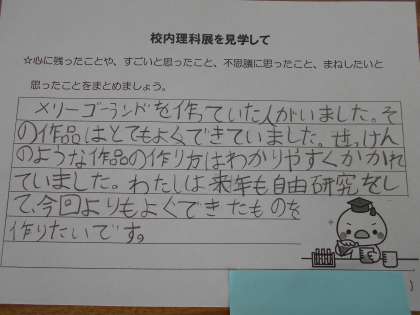 校内理科展を見学して
☆心に残ったことや、すごいと思ったこと、不思議に思ったこと、まねしたいと
思ったことをまとめましょう。
メリーゴーランドを作っていた人がいました。そ
の作品はとてもよくできていました。せっけん
のような作品の作り方はわかりやすくかかれ
ていました。わたしは来年も自由研究をし
て、今回よりもよくできたものを
作りたいです。